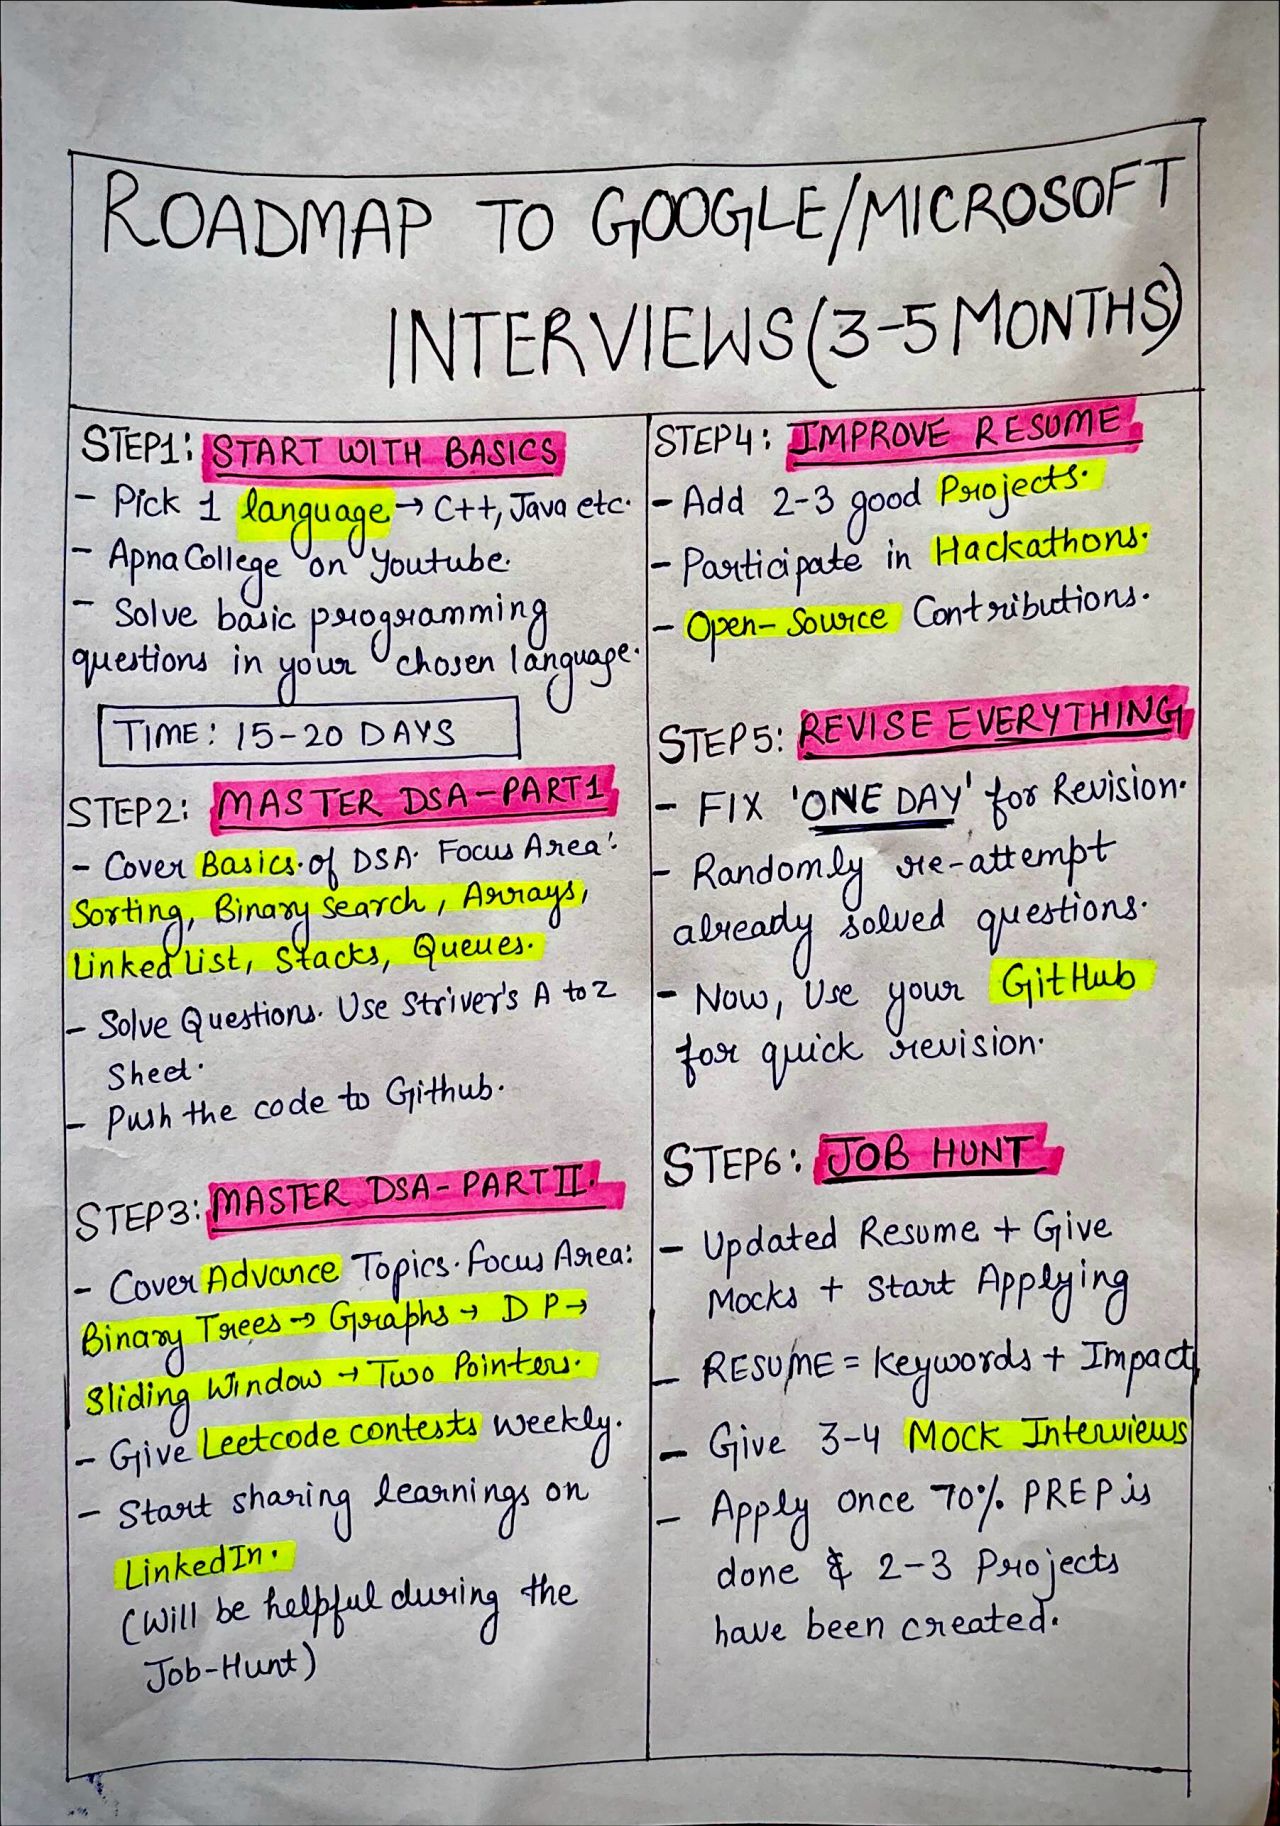 ROADMAP TO GOOGLE/MICROSOFT
INTERVIEWS (3-5 MONTHS)
STEP1: START WITH BASICS
- Pick 1 language → C++, Java etc.
- ApnaCollege on Youtube.
- Solve basic programming
questions in your chosen language.
TIME: 15-20 DAYS
STEP2: MASTER DSA-PART1
- Cover Basics of DSA. Focus Area:
Sorting, Binary search, Arrays,
Linked List, Stacks, Queues.
- Solve Questions. Use Striver's A to Z
Sheet.
- Push the code to Github.
STEP3: MASTER DSA-PART II.
- Cover Advance Topics. Focus Area:
Binary Trees → Graphs → DP →
Sliding Window → Two Pointers.
- Give Leetcode contests weekly.
- Start sharing learnings on
LinkedIn.
(Will be helpful during the
Job-Hunt)
STEP4: IMPROVE RESUME
- Add 2-3 good Projects.
- Participate in Hackathons.
- Open-Source Contributions.
STEP5: REVISE EVERYTHING
- FIX 'ONE DAY' for Revision.
- Randomly re-attempt
already solved questions.
- Now, Use your GitHub
for quick revision.
STEP6: JOB HUNT
- Updated Resume + Give
Mocks + Start Applying
- RESUME = Keywords + Impact
- Give 3-4 Mock Interviews
- Apply once 70% PREP is
done & 2-3 Projects
have been created.